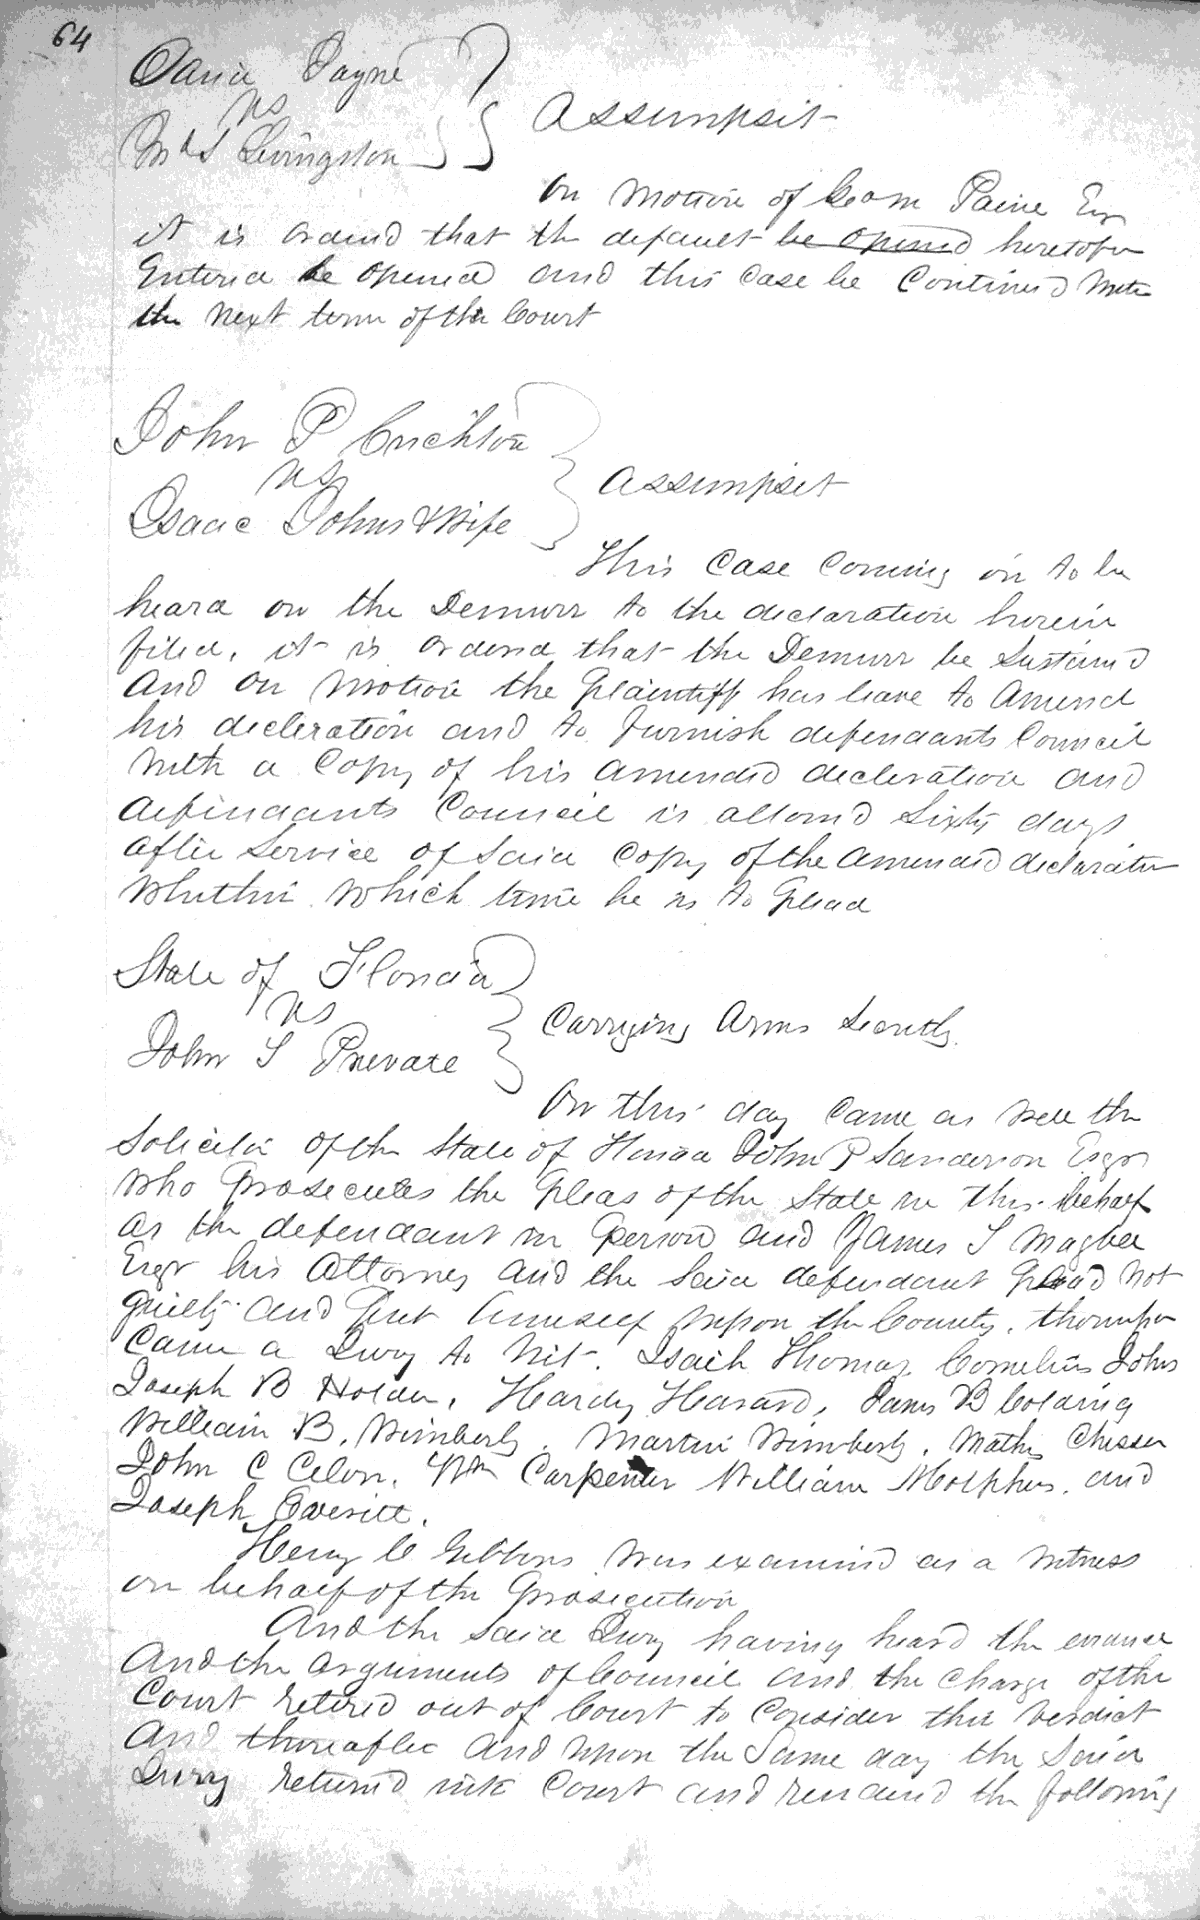 64
David Payne
vs
M d L Livingston
Assumpsit
On Motion of Geo M Paine Esqr
it is orderd that the default be opened heretofor
Enterd be opened and this case be Continued unto
the next term of the Court
John P Crichton
vs
Isaac Johns & Wife
Assumpsit
This Case Coming on to be
heard on the Demurr to the declaration herein
filed, it is ordered that the Demurr be Sustaind
And on Motion the Plaintiff has leave to Amend
his decleration and to furnish defendants Council
with a Copy of his amended decleration and
defendants Council is allowd Sixty days
after Service of Said Copy of the amended declaration
whithin which time he is to plead
State of Florida
vs
John S Prevatt
Carrying Arms Secretly
On this day Came as well the
Solicitor of the State of Florida John P Sanderson Esqr
who Prosecutes the Pleas of the State in this behalf
as the defendant in person and James T Magbee
Esqr his Attorney and the Said defendant plead not
guilty and put himself upon the County. thereupon
Came a Jury to Wit. Isaih Thomas, Cornelius Johns
Joseph B Holder, Hardy Havard, James B Colding
William B. Wimberly, Martin Wimberly, Mathis Chesser
John C Celon, Wm Carpenter William Molphus, and
Joseph Everitt.
Henry C Gibbons was examined as a witness
on behalf of the Prosecution
And the Said Jury having heard the evidence
And the arguments of Council and the Charge of the
Court retired out of Court to Consider thir verdict
And thereafter And upon the Same day the Said
Jury returned into Court and renderd the following